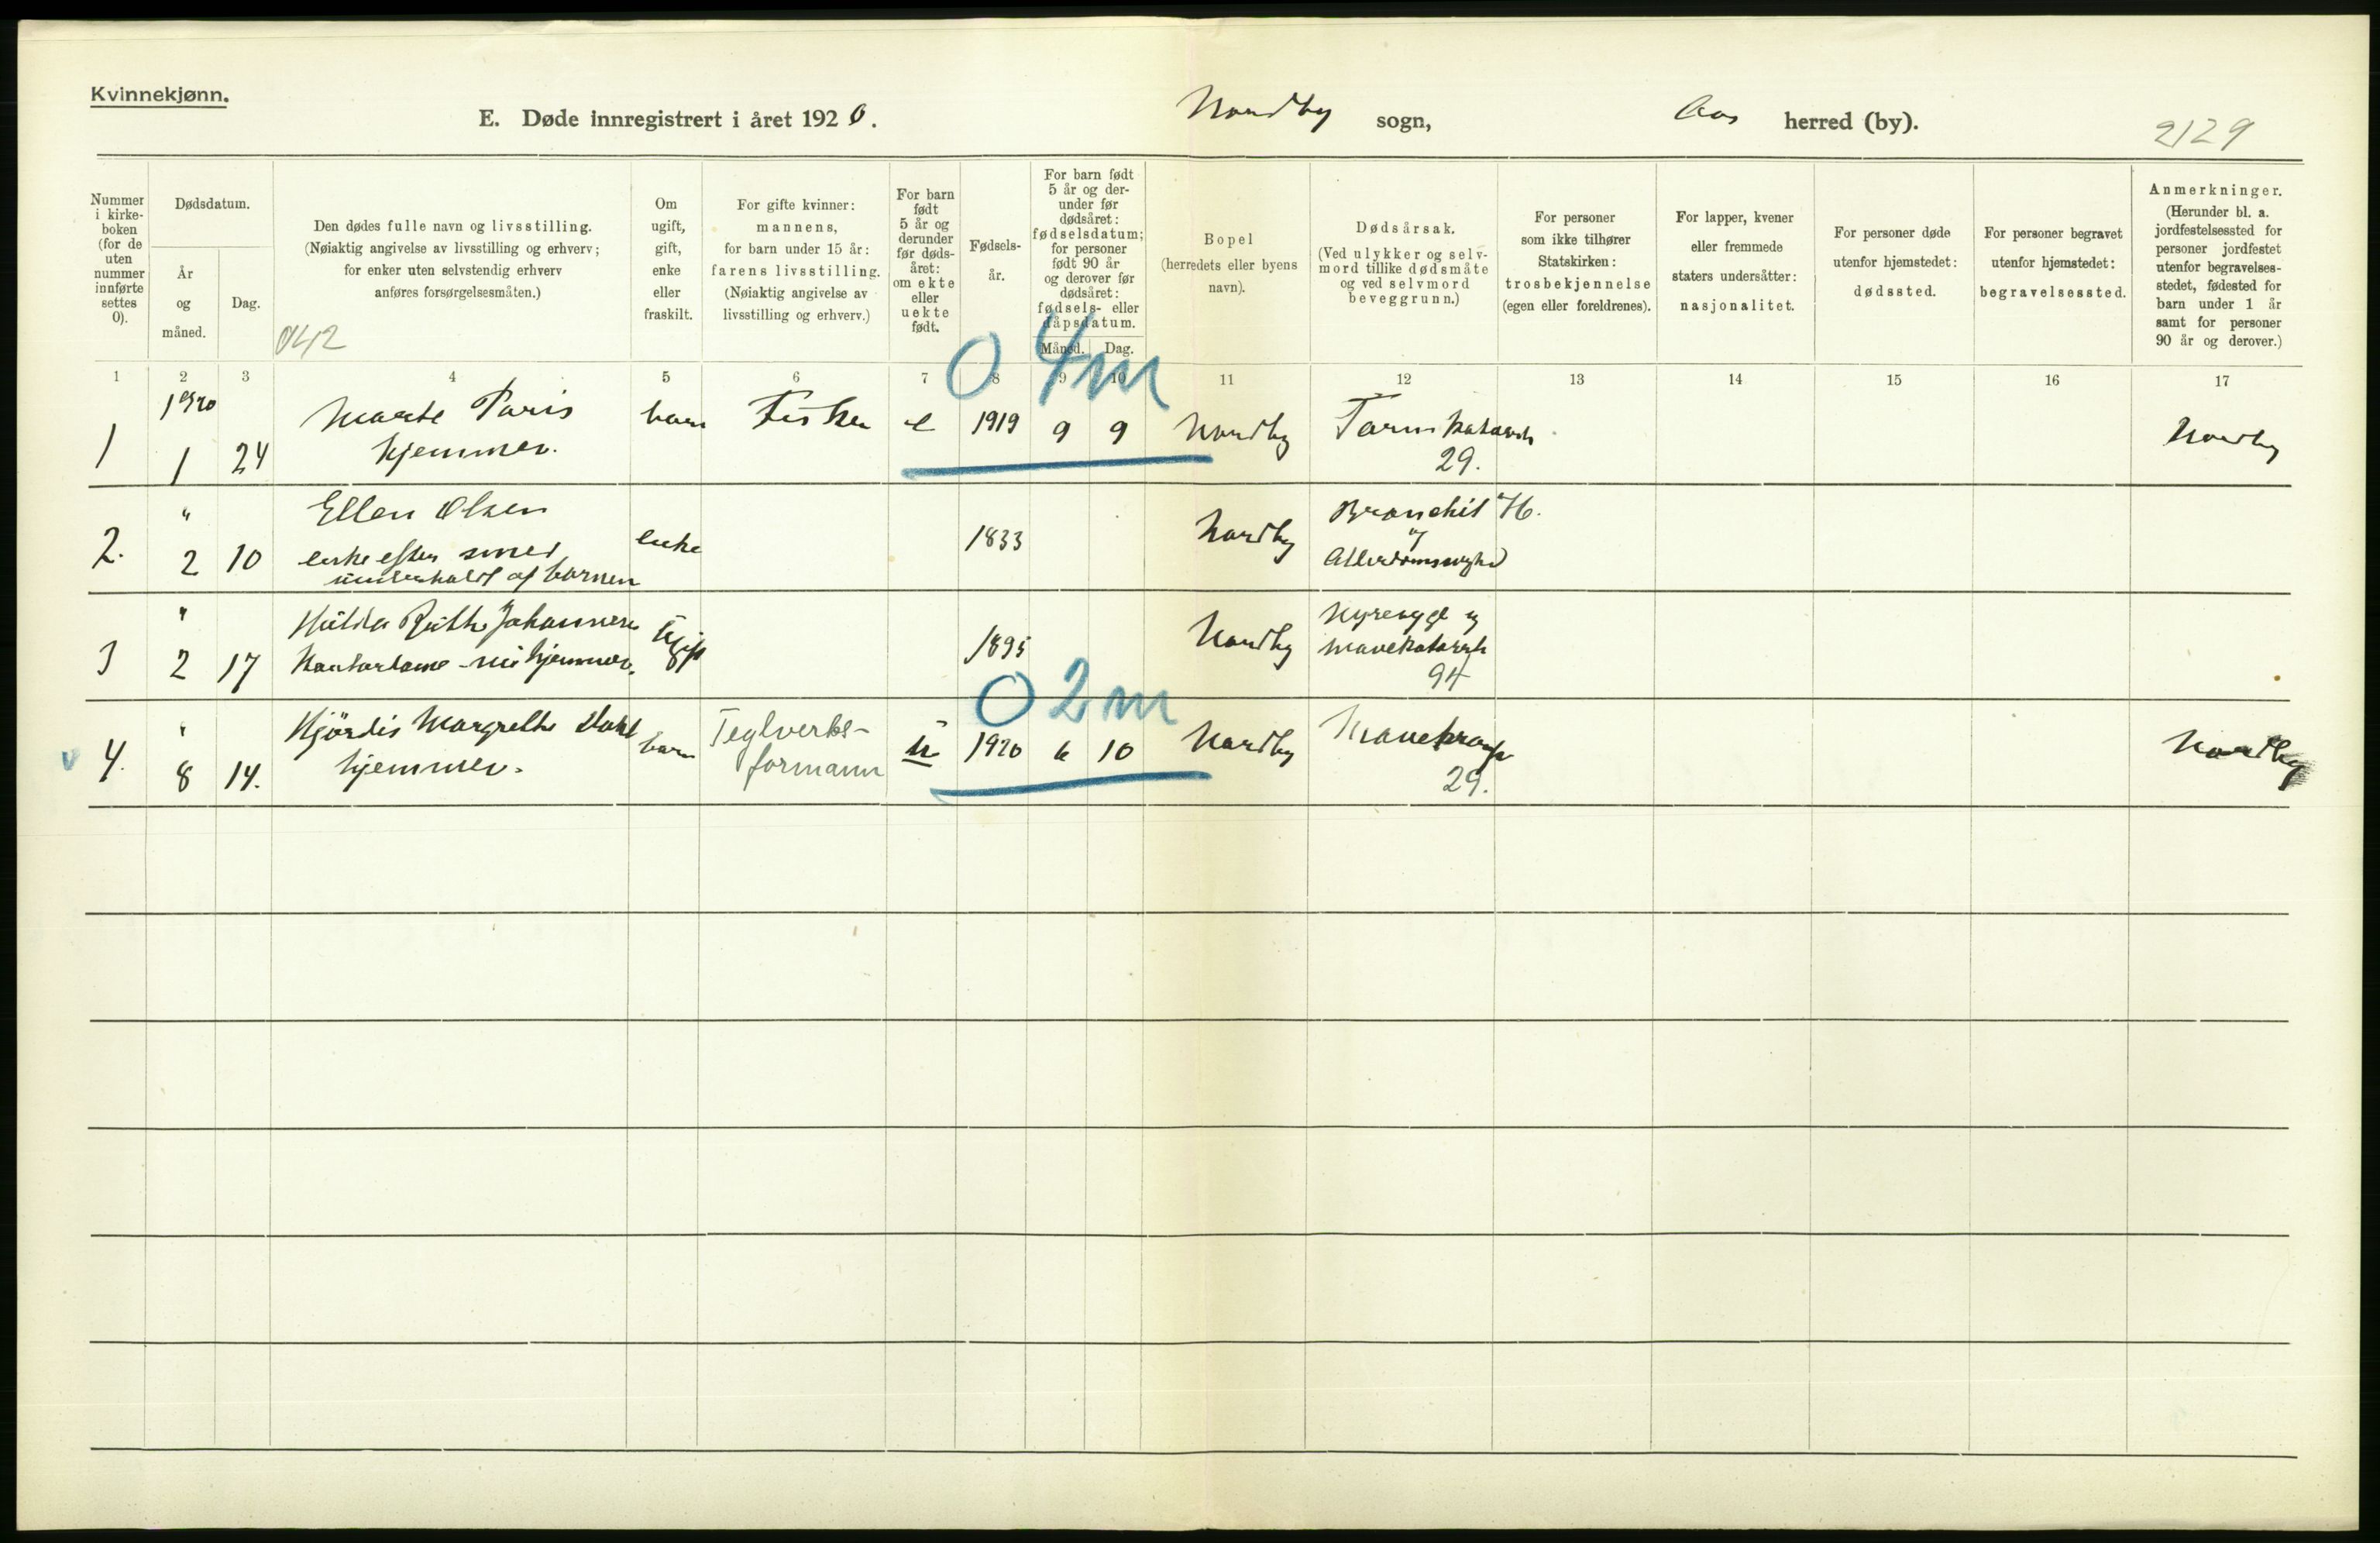 Kvinnekjønn.
E. Døde innregistrert i året 1920.
Nordby sogn,
Aas herred (by).
2129
Nummer i kirke- boken (for de uten nummer innførte settes 0).
Dødsdatum.
År og måned.
Dag.
Den dødes fulle navn og livsstilling.
(Nøiaktig angivelse av livsstilling og erhverv;
for enker uten selvstendig erhverv
anføres forsørgelsesmåten.)
042
Om ugift, gift, enke eller fraskilt.
For gifte kvinner:
mannens,
for barn under 15 år:
farens livsstilling.
(Nøiaktig angivelse av
livsstilling og erhverv.)
For barn født 5 år og derunder før døds- året: om ekte eller uekte født.
Fødsels- år.
For barn født 5 år og der- under før dødsåret: fødselsdatum; for personer født 90 år og derover før dødsåret: fødsels- eller dåpsdatum.
Måned. Dag.
Bopel
(herredets eller byens
navn).
Dødsårsak.
(Ved ulykker og selv-
mord tillike dødsmåte
og ved selvmord
beveggrunn.)
For personer
som ikke tilhører
Statskirken:
trosbekjennelse
(egen eller foreldrenes).
For lapper, kvener
eller fremmede
staters undersåtter:
nasjonalitet.
For personer døde
utenfor hjemstedet:
dødssted.
For personer begravet
utenfor hjemstedet:
begravelsessted.
Anmerkninger.
(Herunder bl. a.
jordfestelsessted for
personer jordfestet
utenfor begravelses-
stedet, fødested for
barn under 1 år
samt for personer
90 år og derover.)
1 2 3 4 5 6 7 8 9 10 11 12 13 14 15 16 17
0 4m
1 1920 1 24 Marte Paris barn Fisker e 1919 9 9 Nordby Tarmkatarrh Nordby
hjemmev. 29.
2. " 2 10 Ellen Olsen enke 1833 Nordby Bronchit 76.
enke efter smed og
underholdt af børnen Alderdomssvaghed
3 " 2 17 Hulda Ruth Johannesen Ugift 1895 Nordby Nyresyge og
Kontordame - nu hjemmev. mavekatarrh
94
0 2m
v 4. " 8 14. Hjördis Margrethe Dahl barn Teglverks- u 1920 6 10 Nordby Mavekrampe Nordby
hjemmev. formann 29.